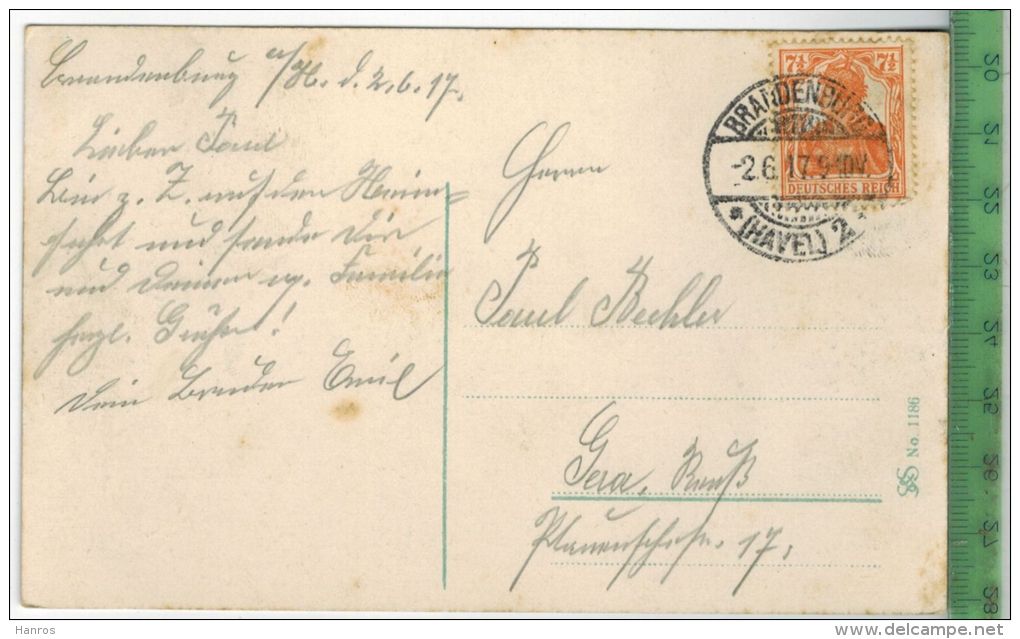 Brandenburg a/H. d. 2.6.17.
Lieber Paul
Bin z. Z. auf der Heim=
fahrt und sende Dir
und Deiner w. Familie
herzl. Grüße!
Dein Bruder Emil
7½ 7½
DEUTSCHES REICH
BRANDENBURG
-2.6.17.9-10V.
*(HAVEL) 2*
Herrn
Paul Bechler
Gera, Reuß
Plauenschestr. 17.
No. 1186
20
21
22
23
24
25
26
27
28
Hanros
www.delcampe.net